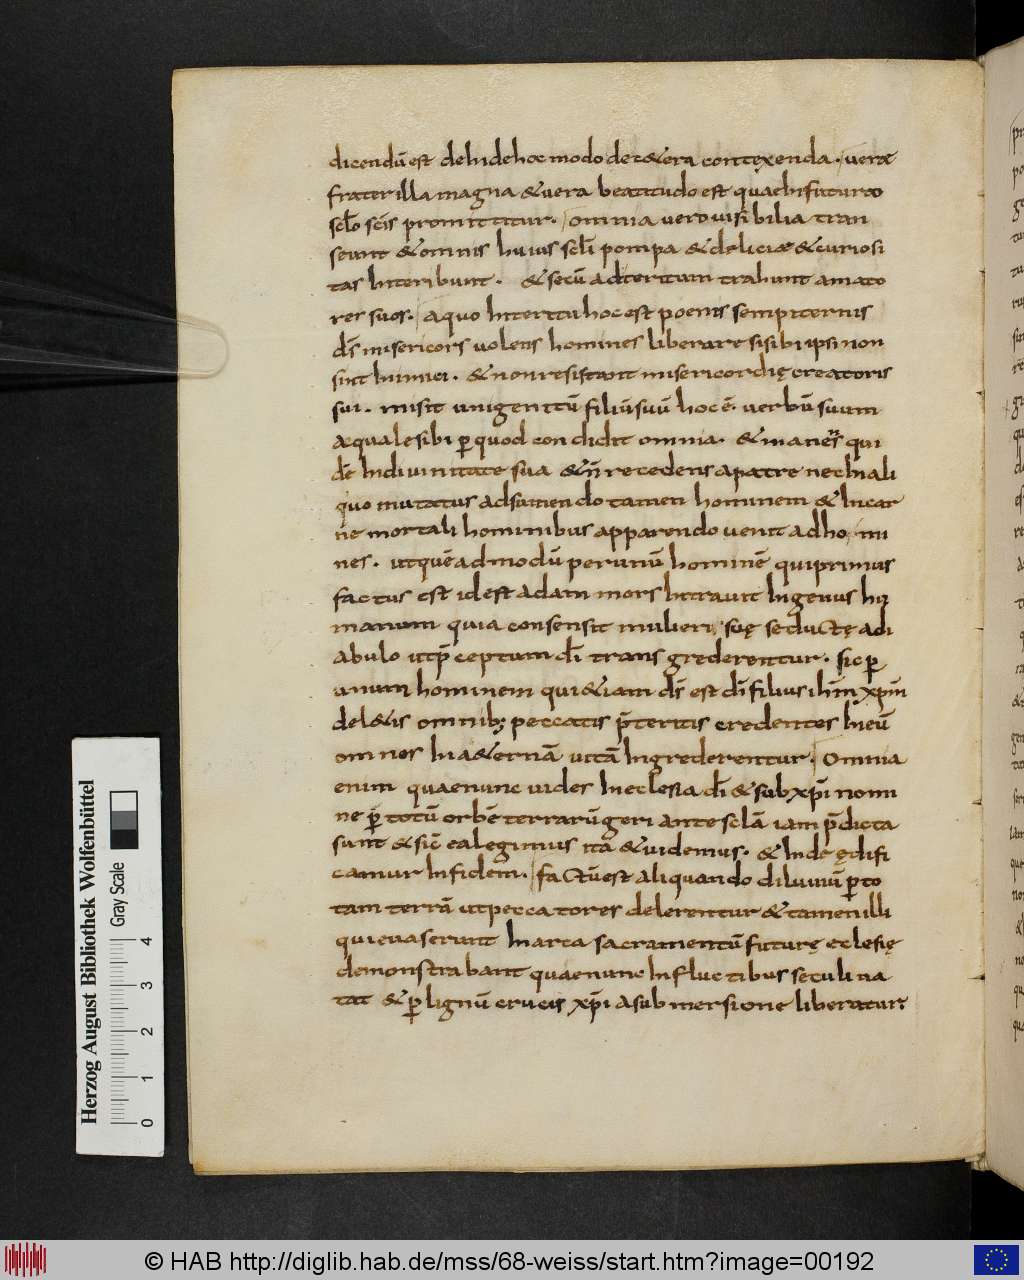 dicendũ est dehinde hoc modo de cętera contexenda. vera
frater illa magna & vera beatitudo est quae hi futuro
sclo scis promittitur. omnia vero visibilia tran
seunt & omnis huius scli pompa & deliciae & curiosi
tas interibunt. & secũ ad teritum trahunt amato
res suos. a quo interitu hoc est poenis sempiternis
ds misericors uolens homines liberare si sibi ipsi non
sint inimici. & non resistant misericordię creatoris
sui. misit unigenitũ filiũ suũ hoc ẽ. verbũ suum
aequale sibi p quod condidit omnia. & maners qui
dẽ in divinitate sua & ñ recedens a patre nec in ali
quo mutatus adsumendo tamen hominem & in car
ne mortali hominibus apparendo venit ad ho mi
nes. ut quẽ ad modũ per unũ hominẽ qui primus
factus est id est adam mors intravit in genus hu
manum quia consensit mulieri suę seductę a di
abulo ut pceptum di transgrederentur. sic p
unum hominem qui & iam ds est di filius ihm xpm
del&is omnib; peccatis pteritis credentes in eũ
omnes in a&ernã vitã ingrederentur. Omnia
enim quae nunc vides in eclesia di & sub xpi nomi
ne p totũ orbẽ terrarũ geri ante sclã iam pdicta
sunt & sic ea legimus ita & videmus. & inde ędifi
camur in fidem. factũ est aliquando diluuiũ p to
tam terrã ut peccatores delerentur & tamen illi
qui evaserunt in arca sacramentũ futurę eclesię
demonstrabant quae nunc in fluctibus seculi na
tat & p lignũ crucis xpi a submersione liberatur;
Herzog August Bibliothek Wolfenbüttel
Gray Scale
0 1 2 3 4
© HAB http://diglib.hab.de/mss/68-weiss/start.htm?image=00192